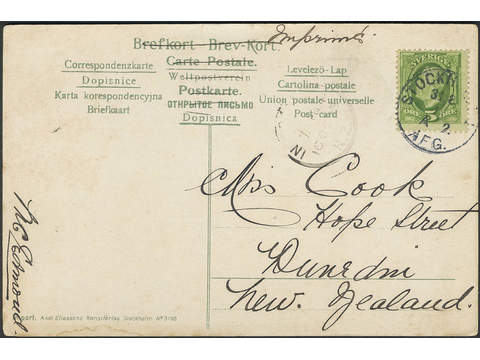 Brefkort - Brev-Kort.
Imprimé
Carte Postale.
Correspondenzkarte
Weltpostverein
Levelező-Lap
Dopisnice
Postkarte
Cartolina-postale
Karta korespondencyjna
ОТКРЫТОЕ ПИСЬМО
Union postale-universelle
Briefkaart
Dopisnica
Postcard
SVERIGE
STOCKH
AFG.
Miss Cook
Hope Street
Dunedin
New Zealand.
Axel Eliassons Konstförlag Stockholm No 3198